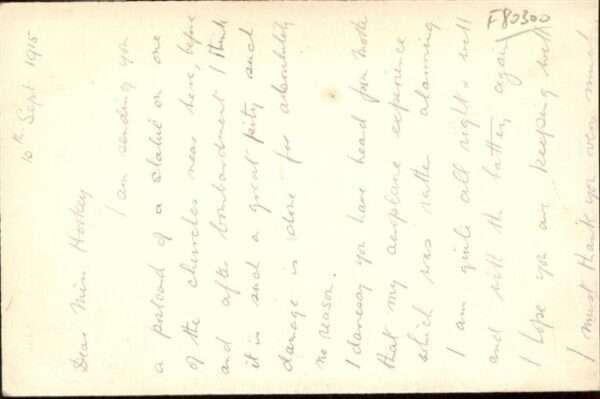 10th Sept 1915
Dear Miss Hockey
I am sending you
a postcard of a statue on one
of the churches near here, before
and after bombardment I think
it is such a great pity such
damage is done for absolutely
no reason.
I daresay you have heard from
that my aeroplane experience
which was rather alarming
I am quite all right & well
and with the battery again
I hope you are keeping well
I must thank you very much
F80300